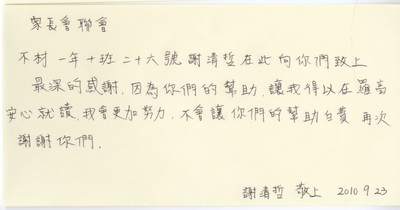 家長會聯會
不材一年十班二十六號謝清哲在此向你們致上
最深的感謝,因為你們的幫助,讓我得以在羅高
安心就讀,我會更加努力,不會讓你們的幫助白費 再次
謝謝你們.
謝清哲 敬上 2010 9 23